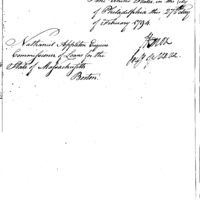 the United States, in the city
of Philadelphia this 27th day
of February 1794.
Nathaniel Appleton Esquire
Commissioner of Loans for the
State of Massachusetts
Boston.